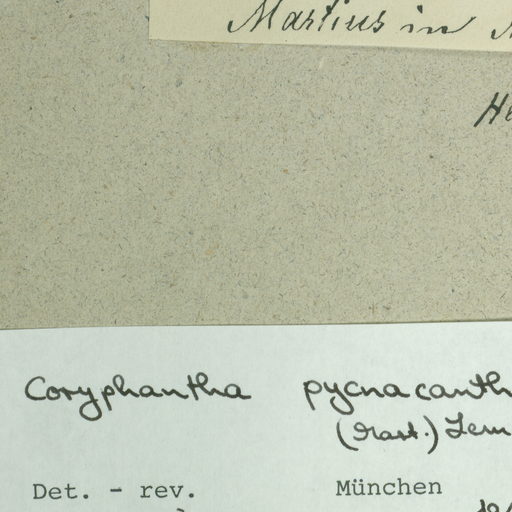 Martius in
He
Coryphantha pycnacanth
(Mart.) Lem
Det. - rev. München